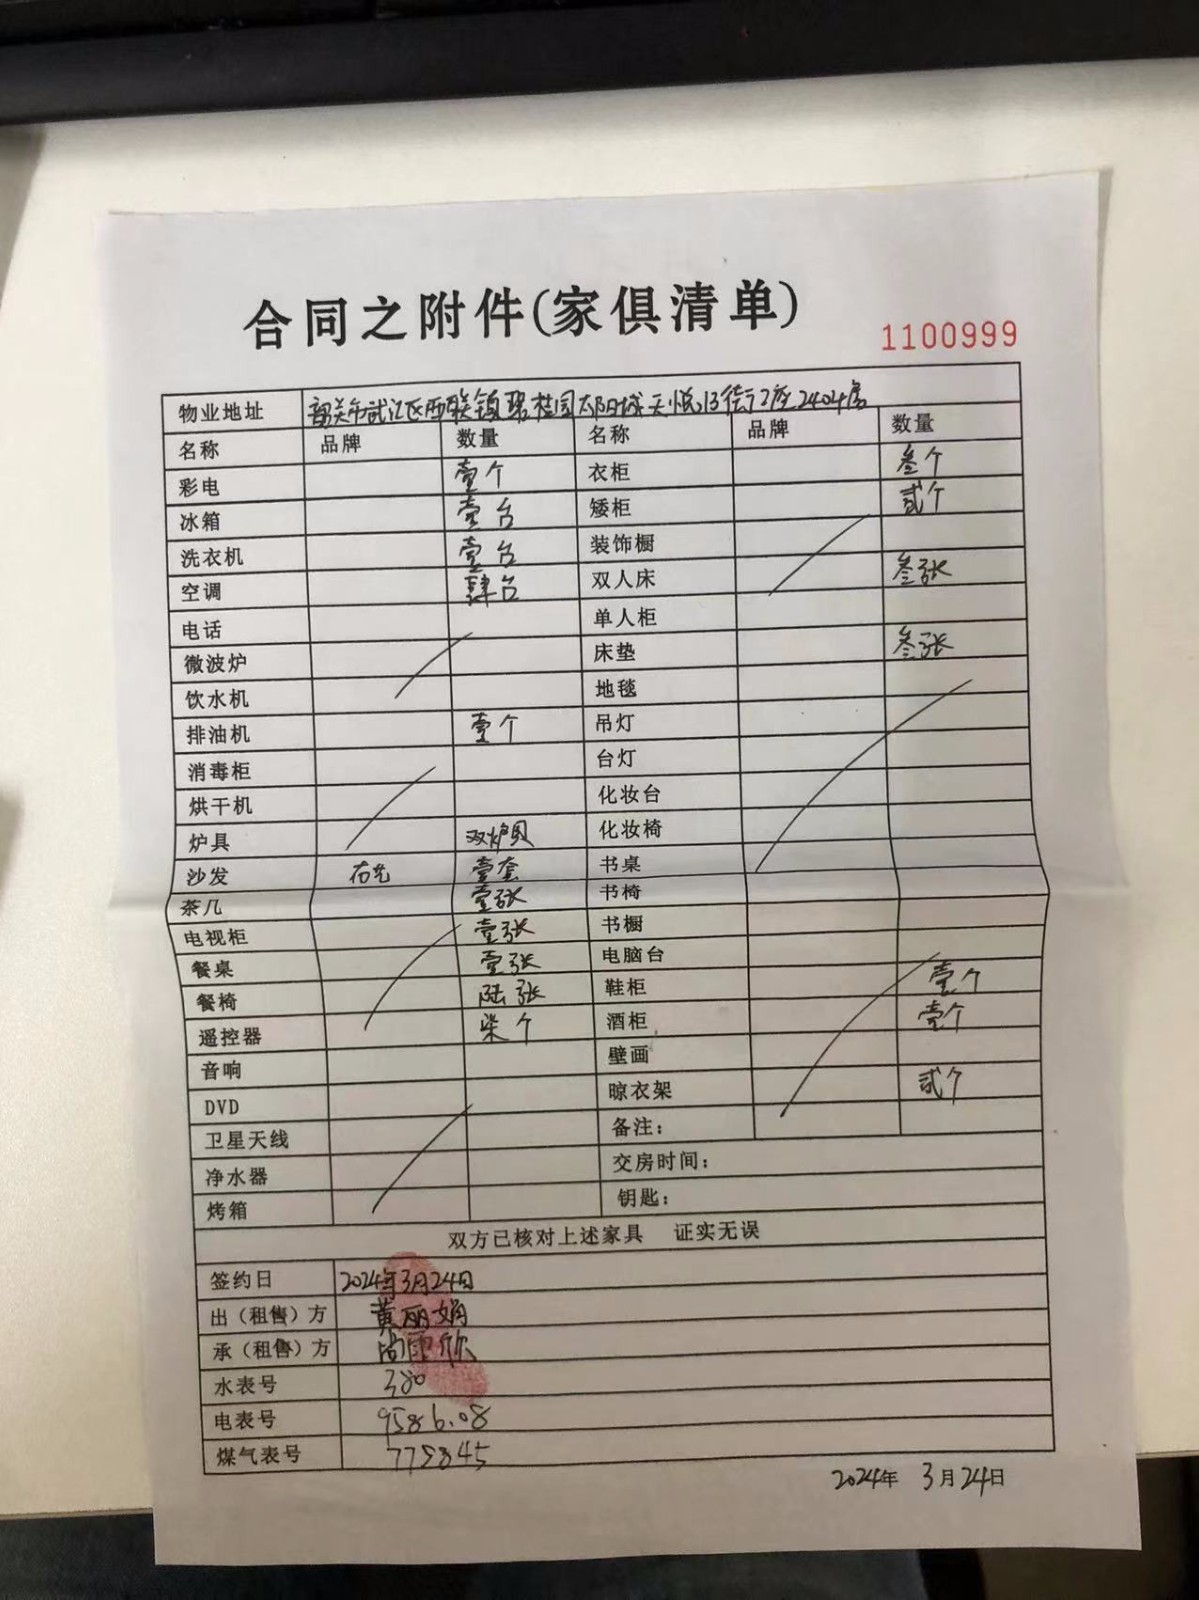 合同之附件(家俱清单)
1100999
物业地址 韶关市武江区西联镇碧桂园太阳城天悦13街2座2404房
名称 品牌 数量 名称 品牌 数量
彩电 壹个 衣柜 叁个
冰箱 壹台 矮柜 贰个
洗衣机 壹台 装饰橱
空调 肆台 双人床 叁张
电话 单人柜
微波炉 床垫 叁张
饮水机 地毯
排油机 壹个 吊灯
消毒柜 台灯
烘干机 化妆台
炉具 双炉具 化妆椅
沙发 壹套 书桌
茶几 壹张 书椅
电视柜 壹张 书橱
餐桌 壹张 电脑台
餐椅 陆张 鞋柜 壹个
遥控器 柒个 酒柜 壹个
音响 壁画
DVD 晾衣架 贰个
卫星天线 备注：
净水器 交房时间：
烤箱 钥匙：
双方已核对上述家具 证实无误
签约日 2024年3月24日
出（租售）方 黄丽娟
承（租售）方
水表号 380
电表号 9586.08
煤气表号 775845
2024年 3月24日